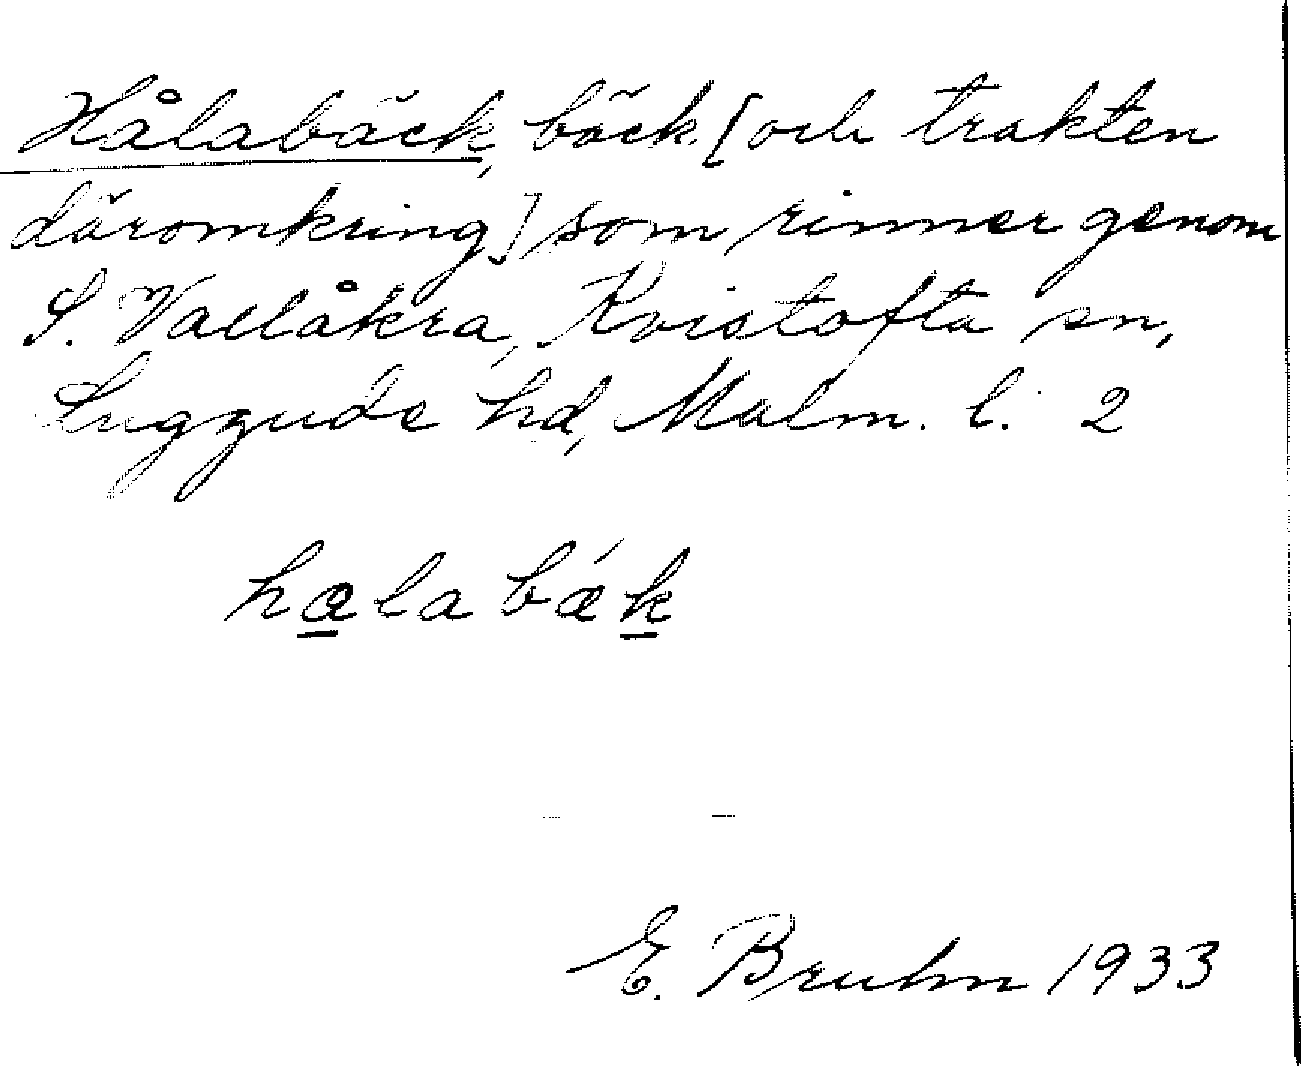 Hålabäck, bäck [och trakten
däromkring] som rinner genom
S. Vallåkra, Kvistofta sn,
Luggude hd, Malm. l. 2
hɑlabǽk
E. Bruhn 1933